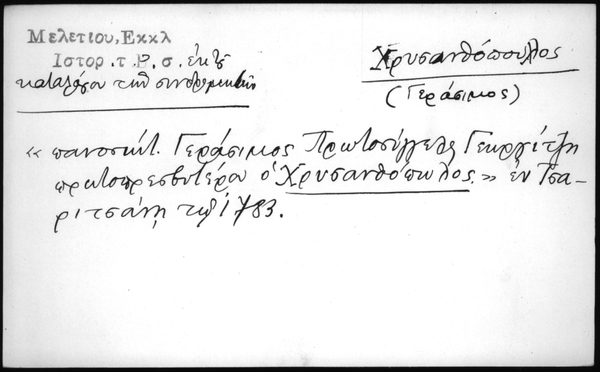 Μελετιου, Εκκλ
Ιστορ. τ. Β. σ. ἐκ τοῦ
καταλόγου τῶν συνδρομητῶν
Χρυσανθόπουλος
(Γεράσιμος)
« πανοσιώτ. Γεράσιμος Πρωτοσύγγελος Γεωργίτζη
πρωτοπρεσβυτέρου ὁ Χρυσανθόπουλος. » ἐν Τσα-
ριτσάνῃ τῷ 1783.